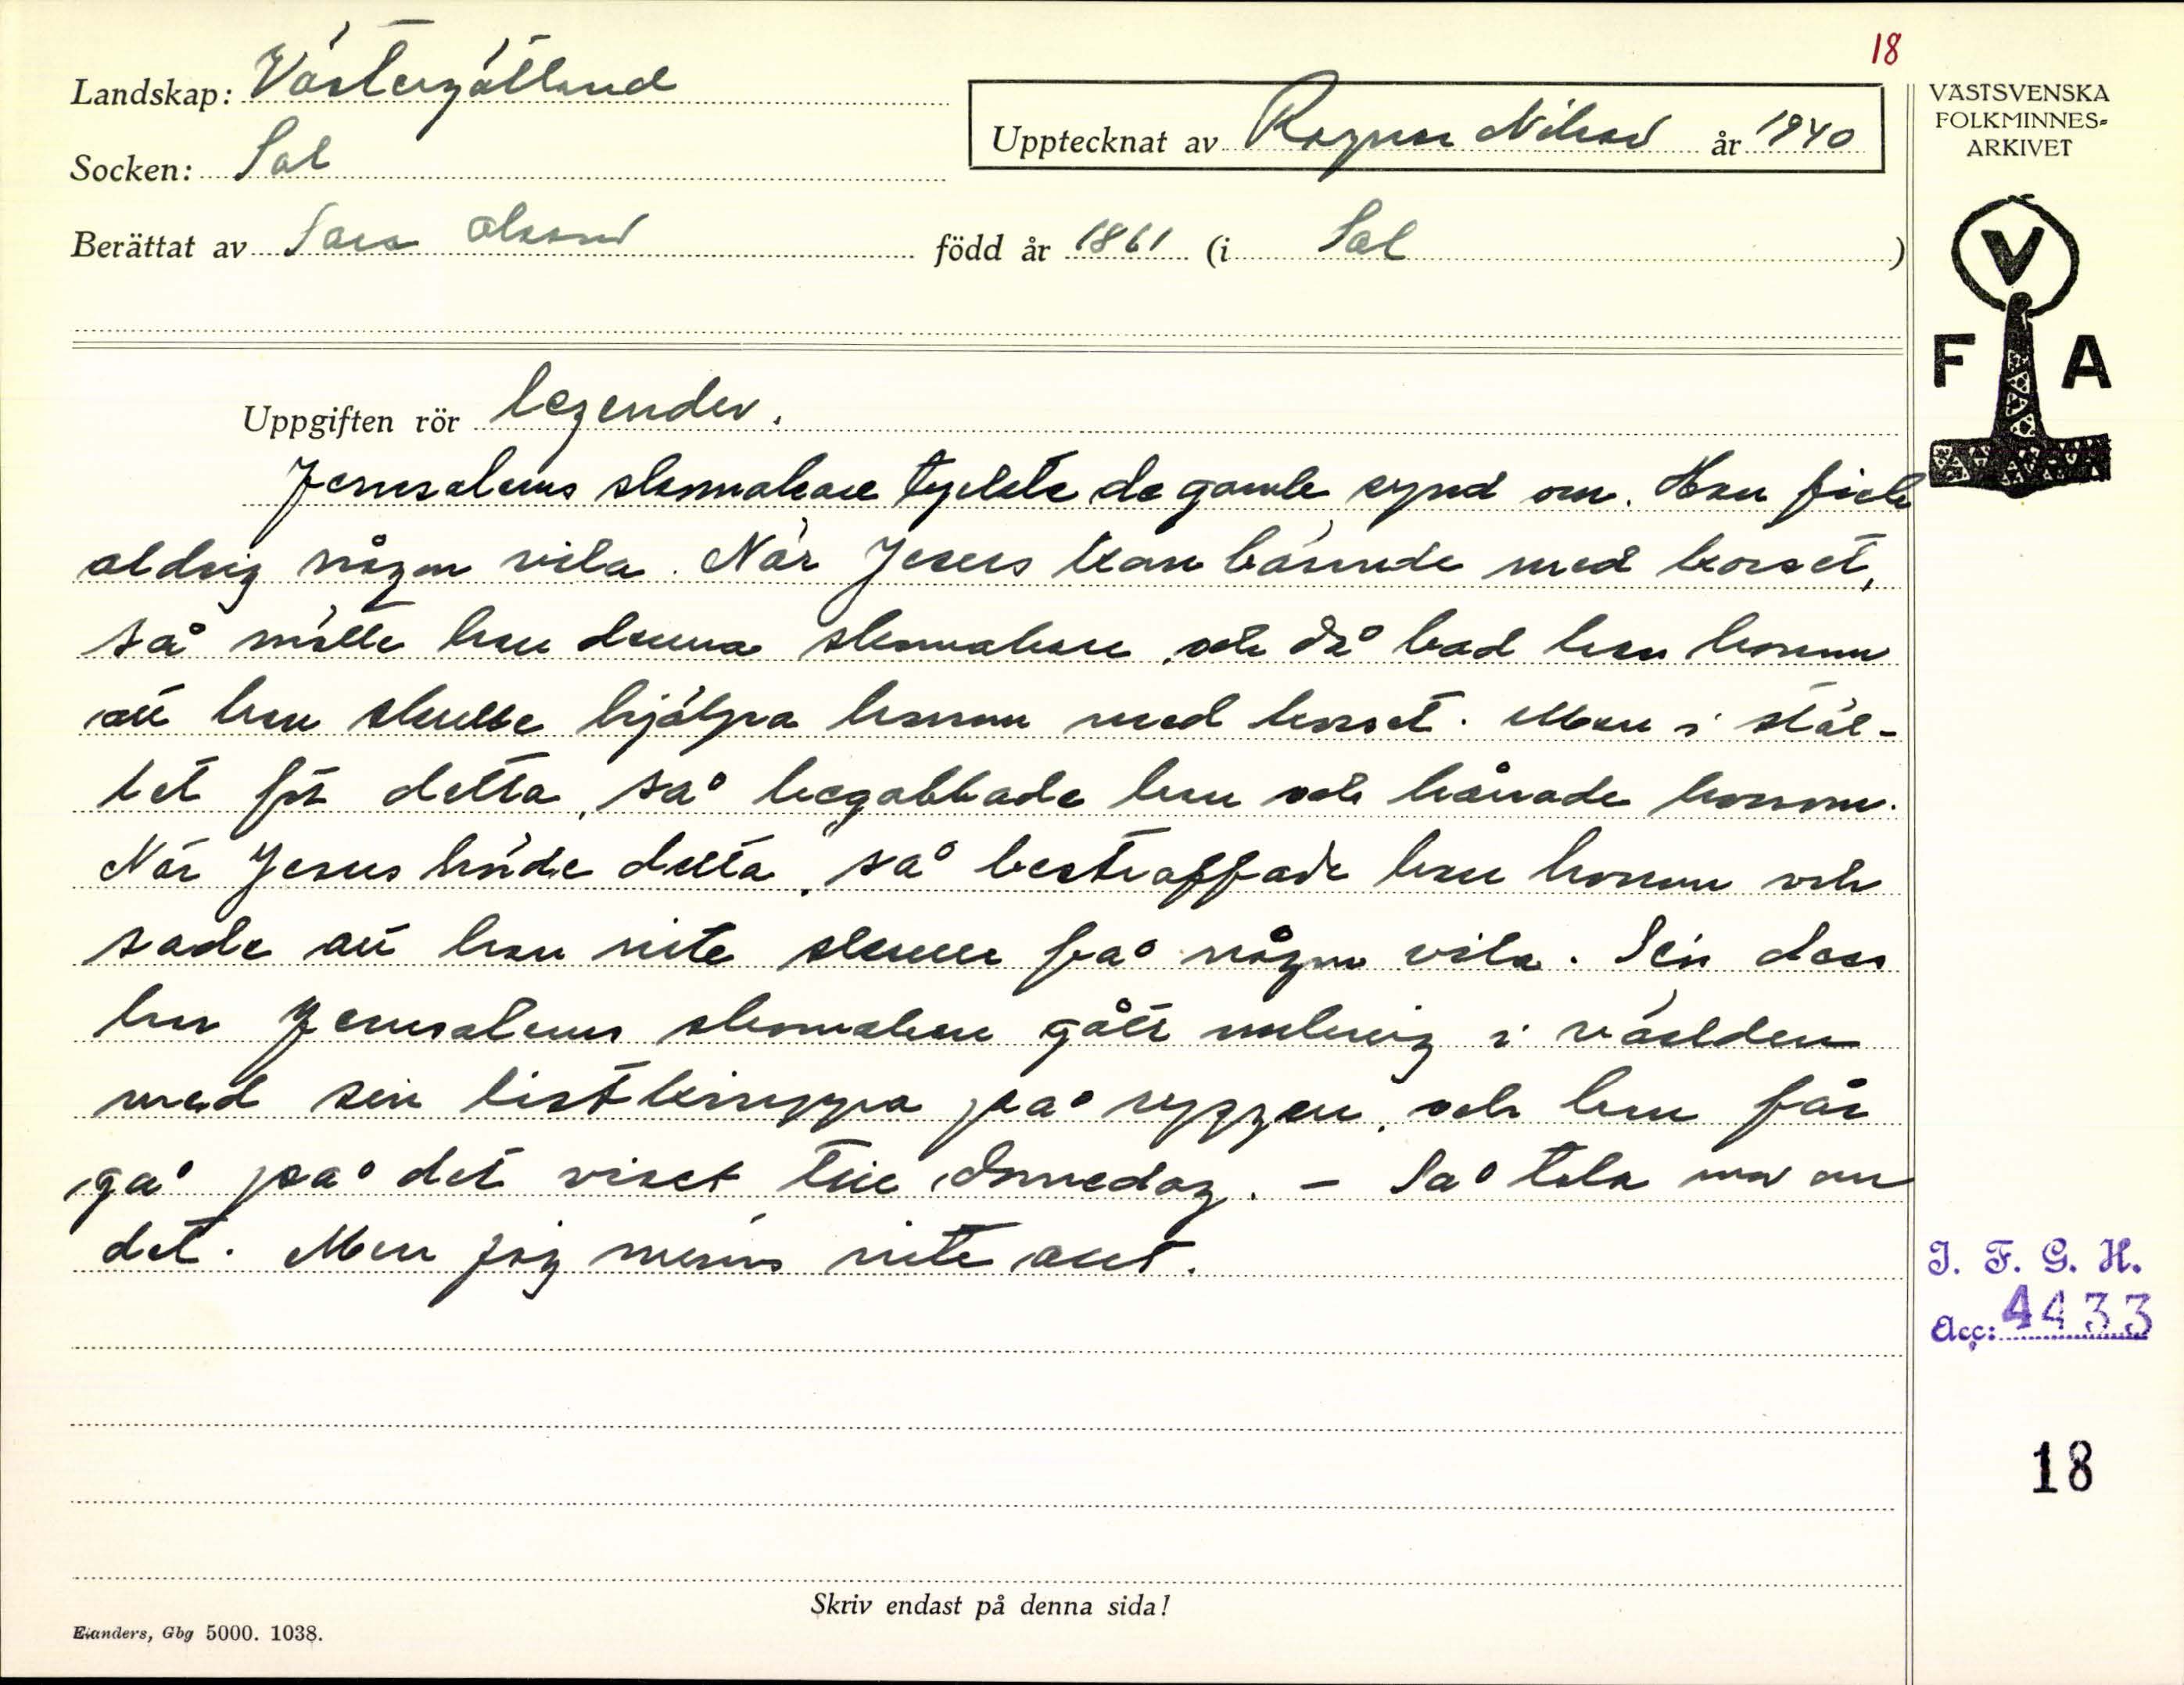 18
Landskap: Västergötland
Upptecknat av Ragnar Nilsson år 1940
VÄSTSVENSKA
FOLKMINNES=
ARKIVET
Socken: Sal
Berättat av Sara Olsson född år 1861 (i Sal)
V
F A
Uppgiften rör legender.
Jerusalems skomakare tyckte de gamle synd om. Han fick
aldrig någon vila. När Jesus kom bärande med korset,
så mötte han denna skomakare och då bad han honom
att han skulle hjälpa honom med korset. Men i stäl-
let för detta, så begabbade han och hånade honom.
När Jesus hörde detta, så bestraffade han honom och
sade att han inte skulle få någon vila. Sen dess
har Jerusalems skomakare gått omkring i världen
med sin listknippa på ryggen, och han får
gå på det viset till domedag. — Så tala mor om
det. Men jag minns inte allt.
J. F. G. H.
Acc: 4433
18
Skriv endast på denna sida!
Elanders, Gbg 5000. 1038.